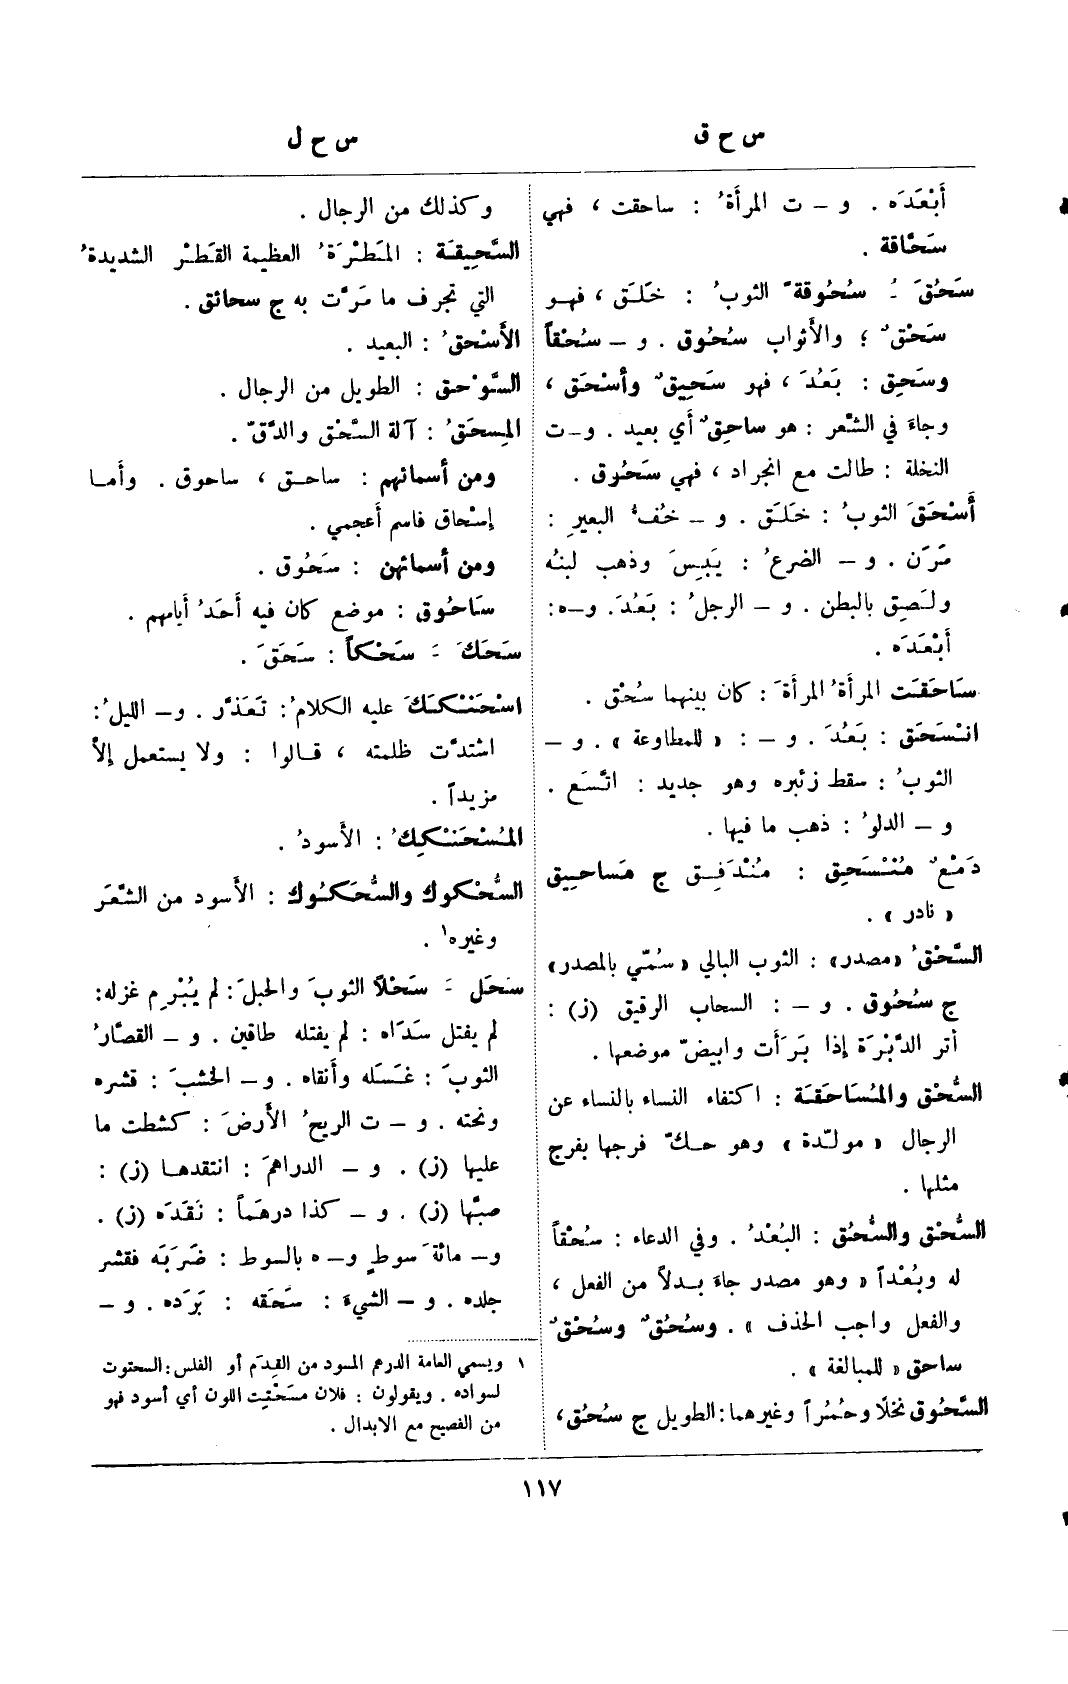 س ح ق
س ح ل
أَبْعَدَه . و – ت المرأةُ : ساحقت ، فهي
سَحَّاقة .
سَحُقَ ـُ سُحُوقةً الثوبُ : خَلَق ، فهو
سَحْقٌ ؛ والأثواب سُحُوق . و – سُحْقاً
وسَحِق : بَعُدَ ، فهو سَحِيقٌ وأَسْحَق ،
وجاءَ في الشعر : هو ساحِقٌ أي بعيد . و–ت
النخلة : طالت مع انجراد ، فهي سَحُوق .
أَسْحَقَ الثوبُ : خَلَق . و – خُفُّ البعيرِ :
مَرَن . و – الضرعُ : يَبِسَ وذهب لبنُه
ولَصِق بالبطن . و – الرجلُ : بَعُدَ. و–ه:
أَبْعَدَه .
سَاحَقَت المرأةُ المرأةَ : كان بينهما سُحْق .
انْسَحَق : بَعُدَ . و – : « للمطاوعة » . و –
الثوبُ : سقط زئبره وهو جديد : اتَّسَع .
و – الدلوُ : ذهب ما فيها .
دَمْعٌ مُنْسَحِق : مُنْدَفِق ج مَساحِيق
« نادر » .
السَّحْقُ «مصدر» : الثوب البالي «سُمّي بالمصدر»
ج سُحُوق . و – : السحاب الرقيق (ز) :
أثر الدَّبْرَة إذا بَرَأَت وابيضّ موضعها .
السُّحْق والمُسَاحَقَة : اكتفاء النساء بالنساء عن
الرجال « مولّدة » وهو حكّ فرجها بفرج
مثلها .
السُّحْق والسُّحُق : البُعْدُ . وفي الدعاء : سُحْقاً
له وبُعْداً « وهو مصدر جاءَ بدلاً من الفعل ،
والفعل واجب الحذف » . وسُحُقٌ وسُحْقٌ
ساحق « للمبالغة » .
السَّحُوق نخلًا وحُمُراً وغيرهما : الطويل ج سُحُق ،
وكذلك من الرجال .
السَّحِيقَة : المَطْرَةُ العظيمة القَطْر الشديدةُ
التي تجرف ما مَرَّت به ج سحائق .
الأَسْحقُ : البعيد .
السَّوْحق : الطويل من الرجال .
المِسحَقُ : آلة السَّحْق والدَّقّ .
ومن أسمائهم : ساحق ، ساحوق . وأَما
إسْحاق فاسم أَعجمي .
ومن أسمائهن : سَحُوق .
سَاحُوق : موضع كان فيه أَحَدُ أَيامهم .
سَحَكَ ـَ سَحْكاً : سَحَقَ .
اسْحَنْكَكَ عليه الكلامُ : تَعَذَّر . و– الليلُ :
اشتدَّت ظلمته ، قالوا : ولا يستعمل إلاّ
مزيداً .
المُسْحَنْكِكُ : الأَسودُ .
السُّحْكوك والسُّحَكُوك : الأَسود من الشَّعَر
وغيره١ .
سَحَل ـَ سَحْلاً الثوبَ والحبلَ : لم يُبْرِم غزله :
لم يفتل سَدَاه : لم يفتله طاقين . و – القصّارُ
الثوبَ : غَسَله وأَنقاه . و– الخشبَ : قشره
ونحته . و – ت الريحُ الأَرضَ : كشطت ما
عليها (ز) . و – الدراهمَ : انتقدها (ز) :
صبّها (ز) . و – كذا درهَماً : نَقَدَه (ز) .
و– مائةَ سوطٍ و–ه بالسوط : ضَرَبَه فقشر
جلده . و – الشيءَ : سَحَقه : بَرَده . و –
١ ويسمي العامة الدرهم المسود من القِدَم أو الفلس : السحتوت
لسواده . ويقولون : فلان مسَحْتِت اللون أي أسود فهو
من الفصيح مع الابدال .
١١٧